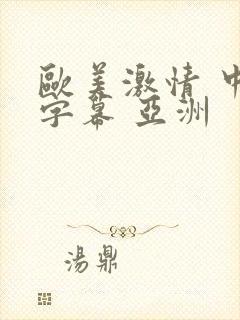 歐美激情 中
字幕 亞洲
湯鼎